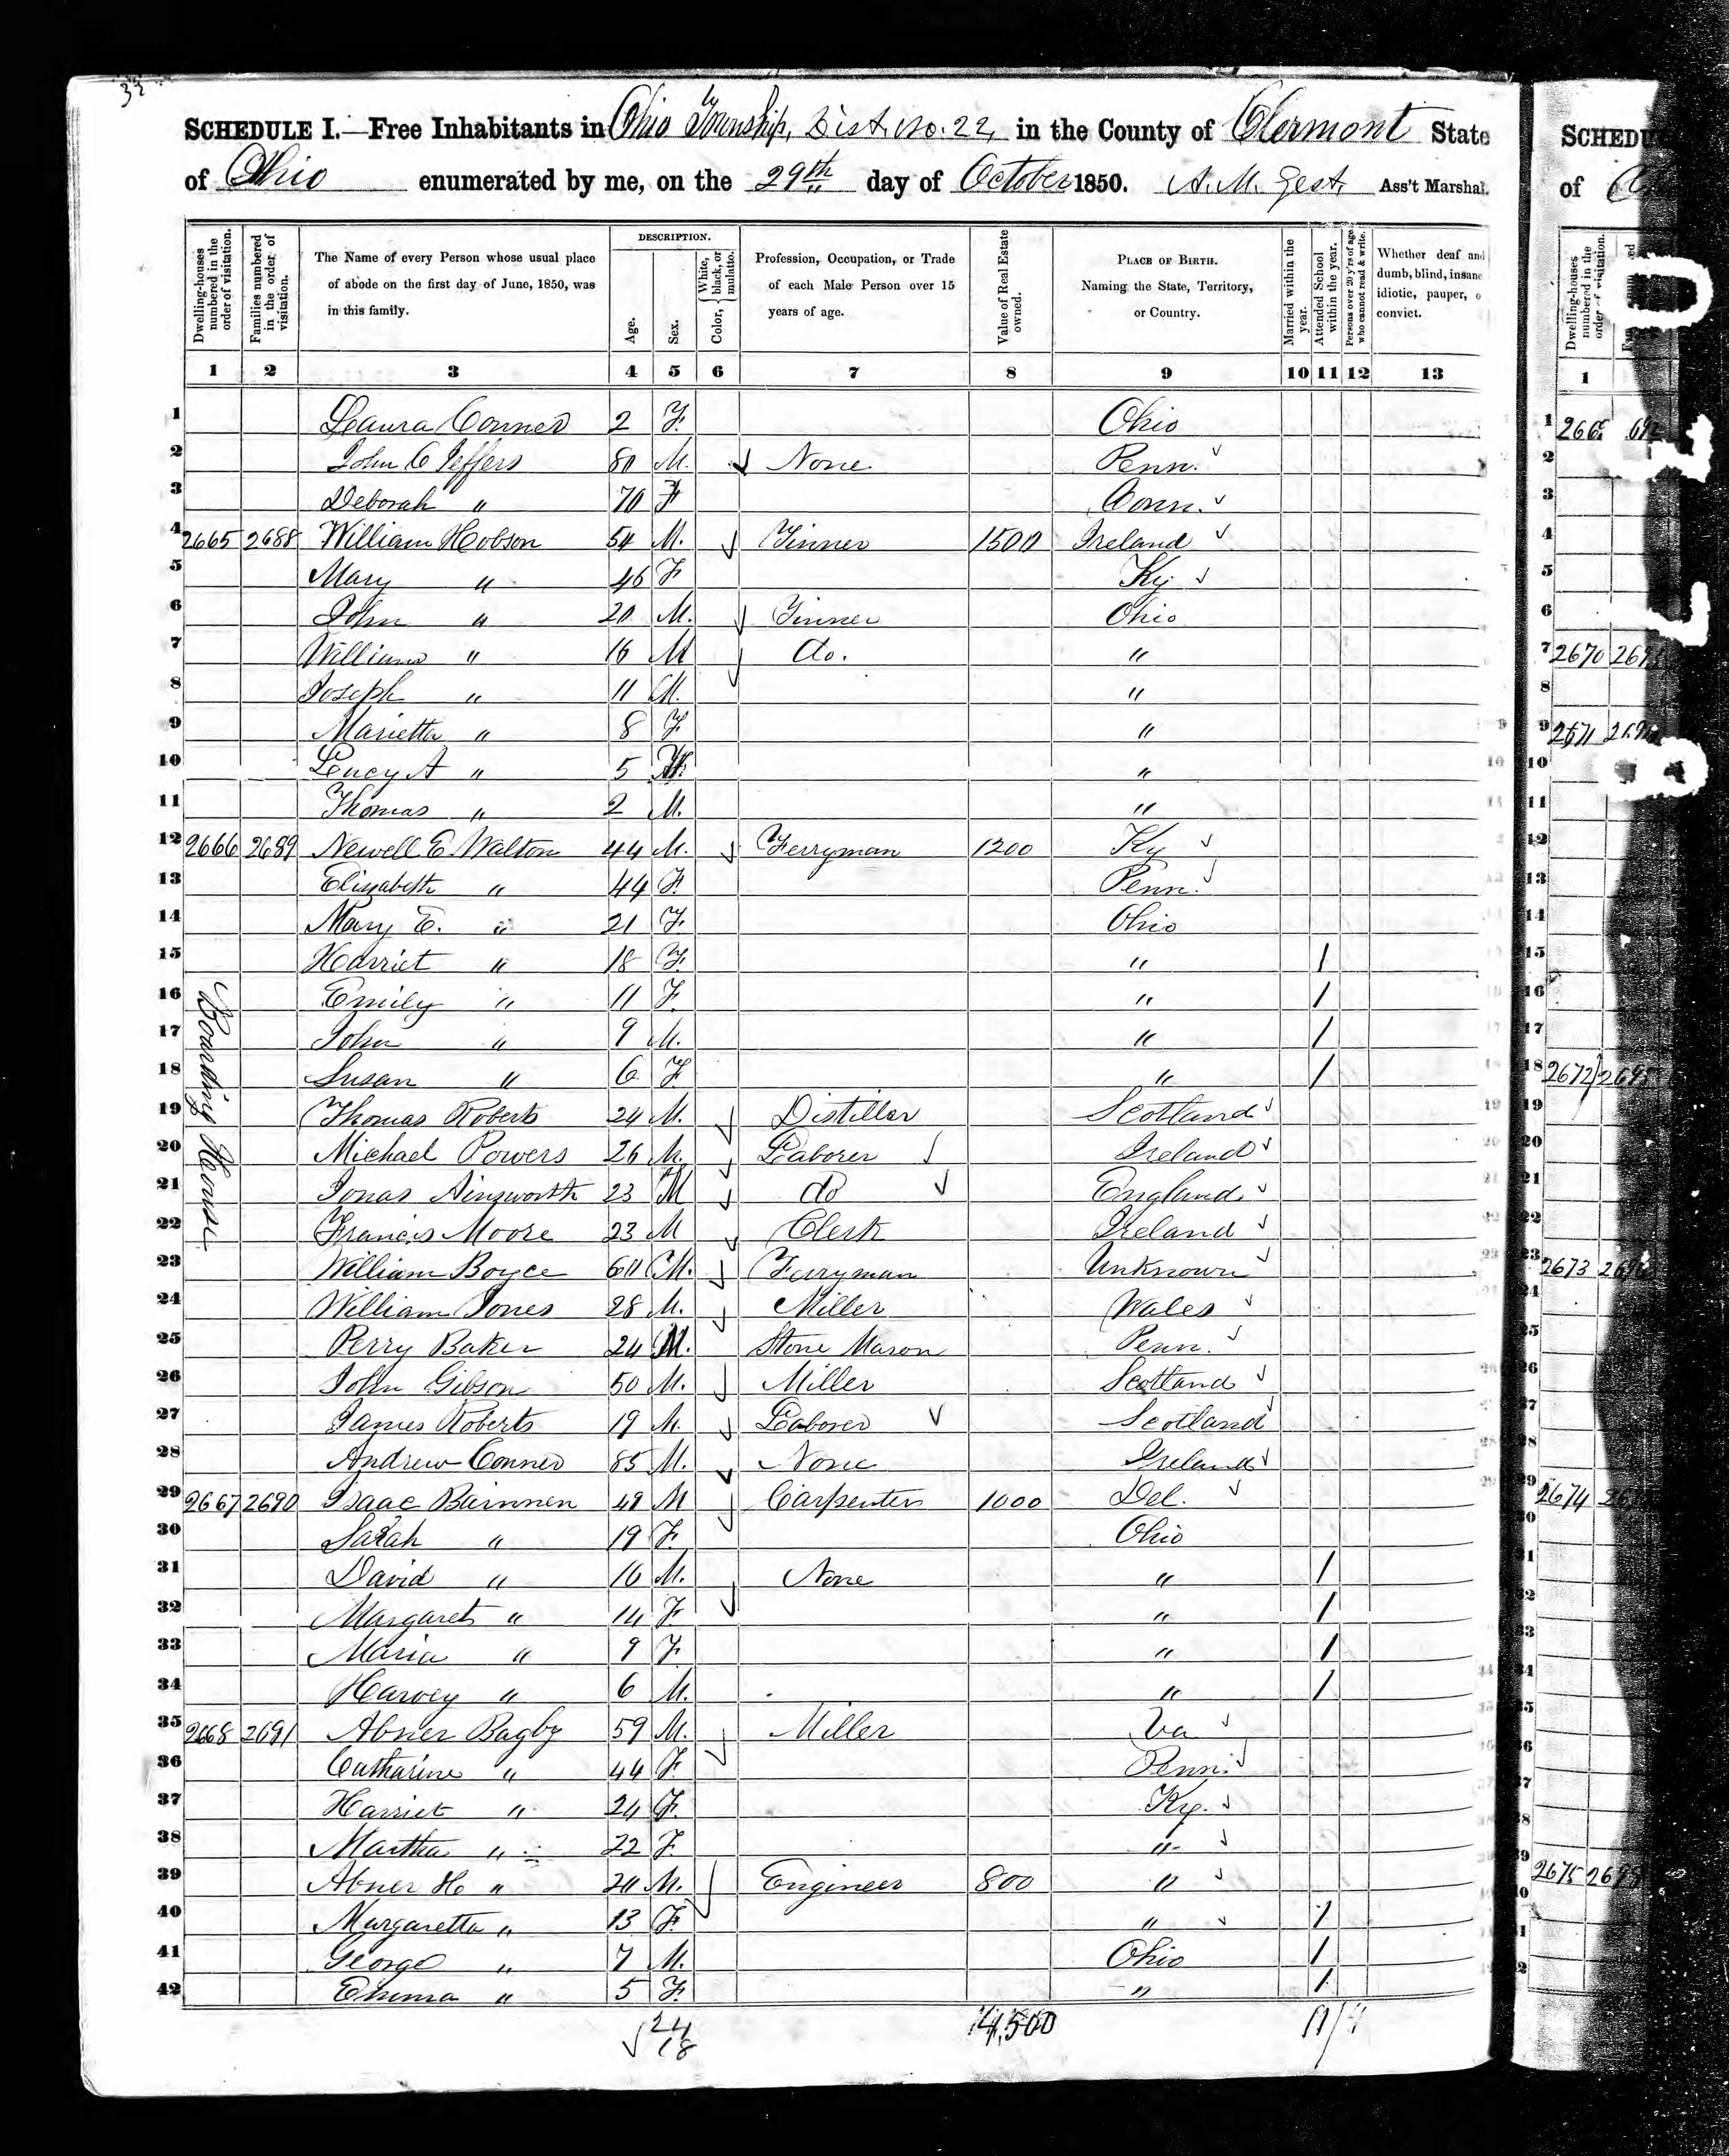 SCHEDULE I.—Free Inhabitants in Ohio Township, Dist. No. 22, in the County of Clermont State
of Ohio enumerated by me, on the 29th day of October 1850. A. M. Gest, Ass't Marshal.
Dwelling-houses numbered in the order of visitation.
Families numbered in the order of visitation.
The Name of every Person whose usual place of abode on the first day of June, 1850, was in this family.
DESCRIPTION.
Age.
Sex.
Color, { White, black, or mulatto.
Profession, Occupation, or Trade of each Male Person over 15 years of age.
Value of Real Estate owned.
PLACE OF BIRTH. Naming the State, Territory, or Country.
Married within the year.
Attended School within the year.
Persons over 20 y'rs of age who cannot read & write.
Whether deaf and dumb, blind, insane idiotic, pauper, o convict.
1 2 3 4 5 6 7 8 9 10 11 12 13
1 Laura Conner 2 F. Ohio
2 John C Jeffers 80 M. None Penn.
3 Deborah " 70 F Conn.
4 2665 2688 William Hobson 54 M. Tinner 1500 Ireland
5 Mary " 46 F Ky.
6 John " 20 M. Tinner Ohio
7 William " 16 M do. "
8 Joseph " 11 M. "
9 Marietta " 8 F "
10 Lucy A " 5 "
11 Thomas " 2 M. "
12 2666 2689 Newell E. Walton 44 M. Ferryman 1200 Ky
13 Elizabeth " 44 F. Penn.
14 Mary E. " 21 F. Ohio
15 Harriet " 18 F. " /
16 Emily " 11 F. " /
17 John " 9 M. " /
18 Susan " 6 F. " /
Boarding House
19 Thomas Roberts 24 M. Distiller Scotland
20 Michael Powers 26 M. Laborer Ireland
21 Jonas Ainsworth 23 M do England
22 Francis Moore 23 M Clerk Ireland
23 William Boyce 60 M. Ferryman Unknown
24 William Jones 28 M. Miller Wales
25 Perry Baker 24 M. Stone Mason Penn.
26 John Gibson 50 M. Miller Scotland
27 James Roberts 19 M. Laborer Scotland
28 Andrew Conner 85 M. None Ireland
29 2667 2690 Isaac 49 M Carpenter 1000 Del.
30 Sarah " 19 F. Ohio
31 David " 16 M. None " /
32 Margaret " 14 F. " /
33 Maria " 9 F. " /
34 Harvey " 6 M. " /
35 2668 2691 Abner Bagby 59 M. Miller Va
36 Catharine " 44 F. Penn.
37 Harriet " 24 F. Ky.
38 Martha " 22 F. "
39 Abner H. " 20 M. Engineer 800 "
40 Margaretta " 13 F. " /
41 George " 7 M. Ohio /
42 Emma " 5 F. " /
24
18
4,500
SCHEDU
of
Dwelling-houses numbered in the order of visitation.
1
7 2670
9 2671
18 2672
23 2673
2674
2675